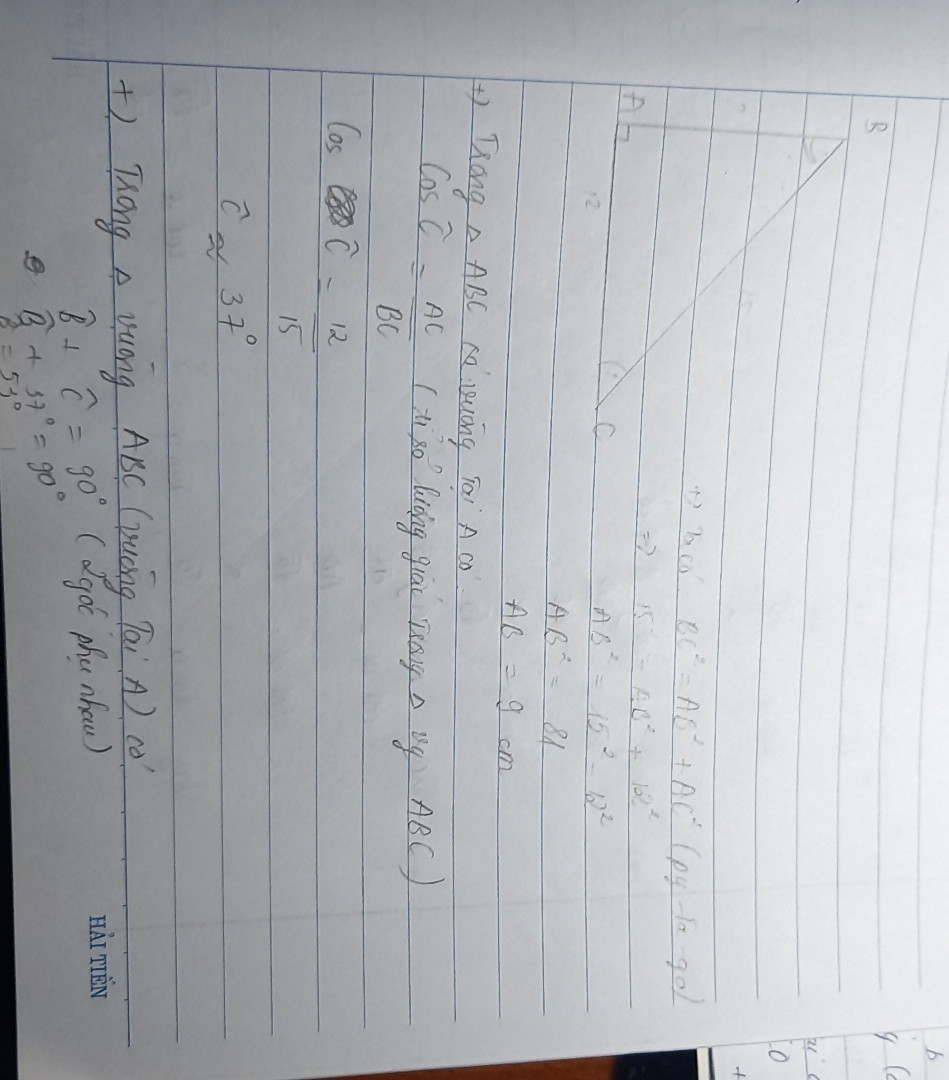 B
?
A
12
C
+) Ta có: BC² = AB² + AC² (py-ta-go)
=> 15² = AB² + 12²
AB² = 15² - 12²
AB² = 81
AB = 9 cm
+) Trong △ ABC vuông Tại A có:
Cos Ĉ = AC/BC (tỉ số lượng giác Trong △ vg ABC)
Cos Ĉ = 12/15
Ĉ ≈ 37°
+) Trong △ vuông ABC (vuông Tại A) có
B̂ + Ĉ = 90° (2 góc phụ nhau)
B̂ + 37° = 90°
B̂ = 53°
HẢI TIẾN